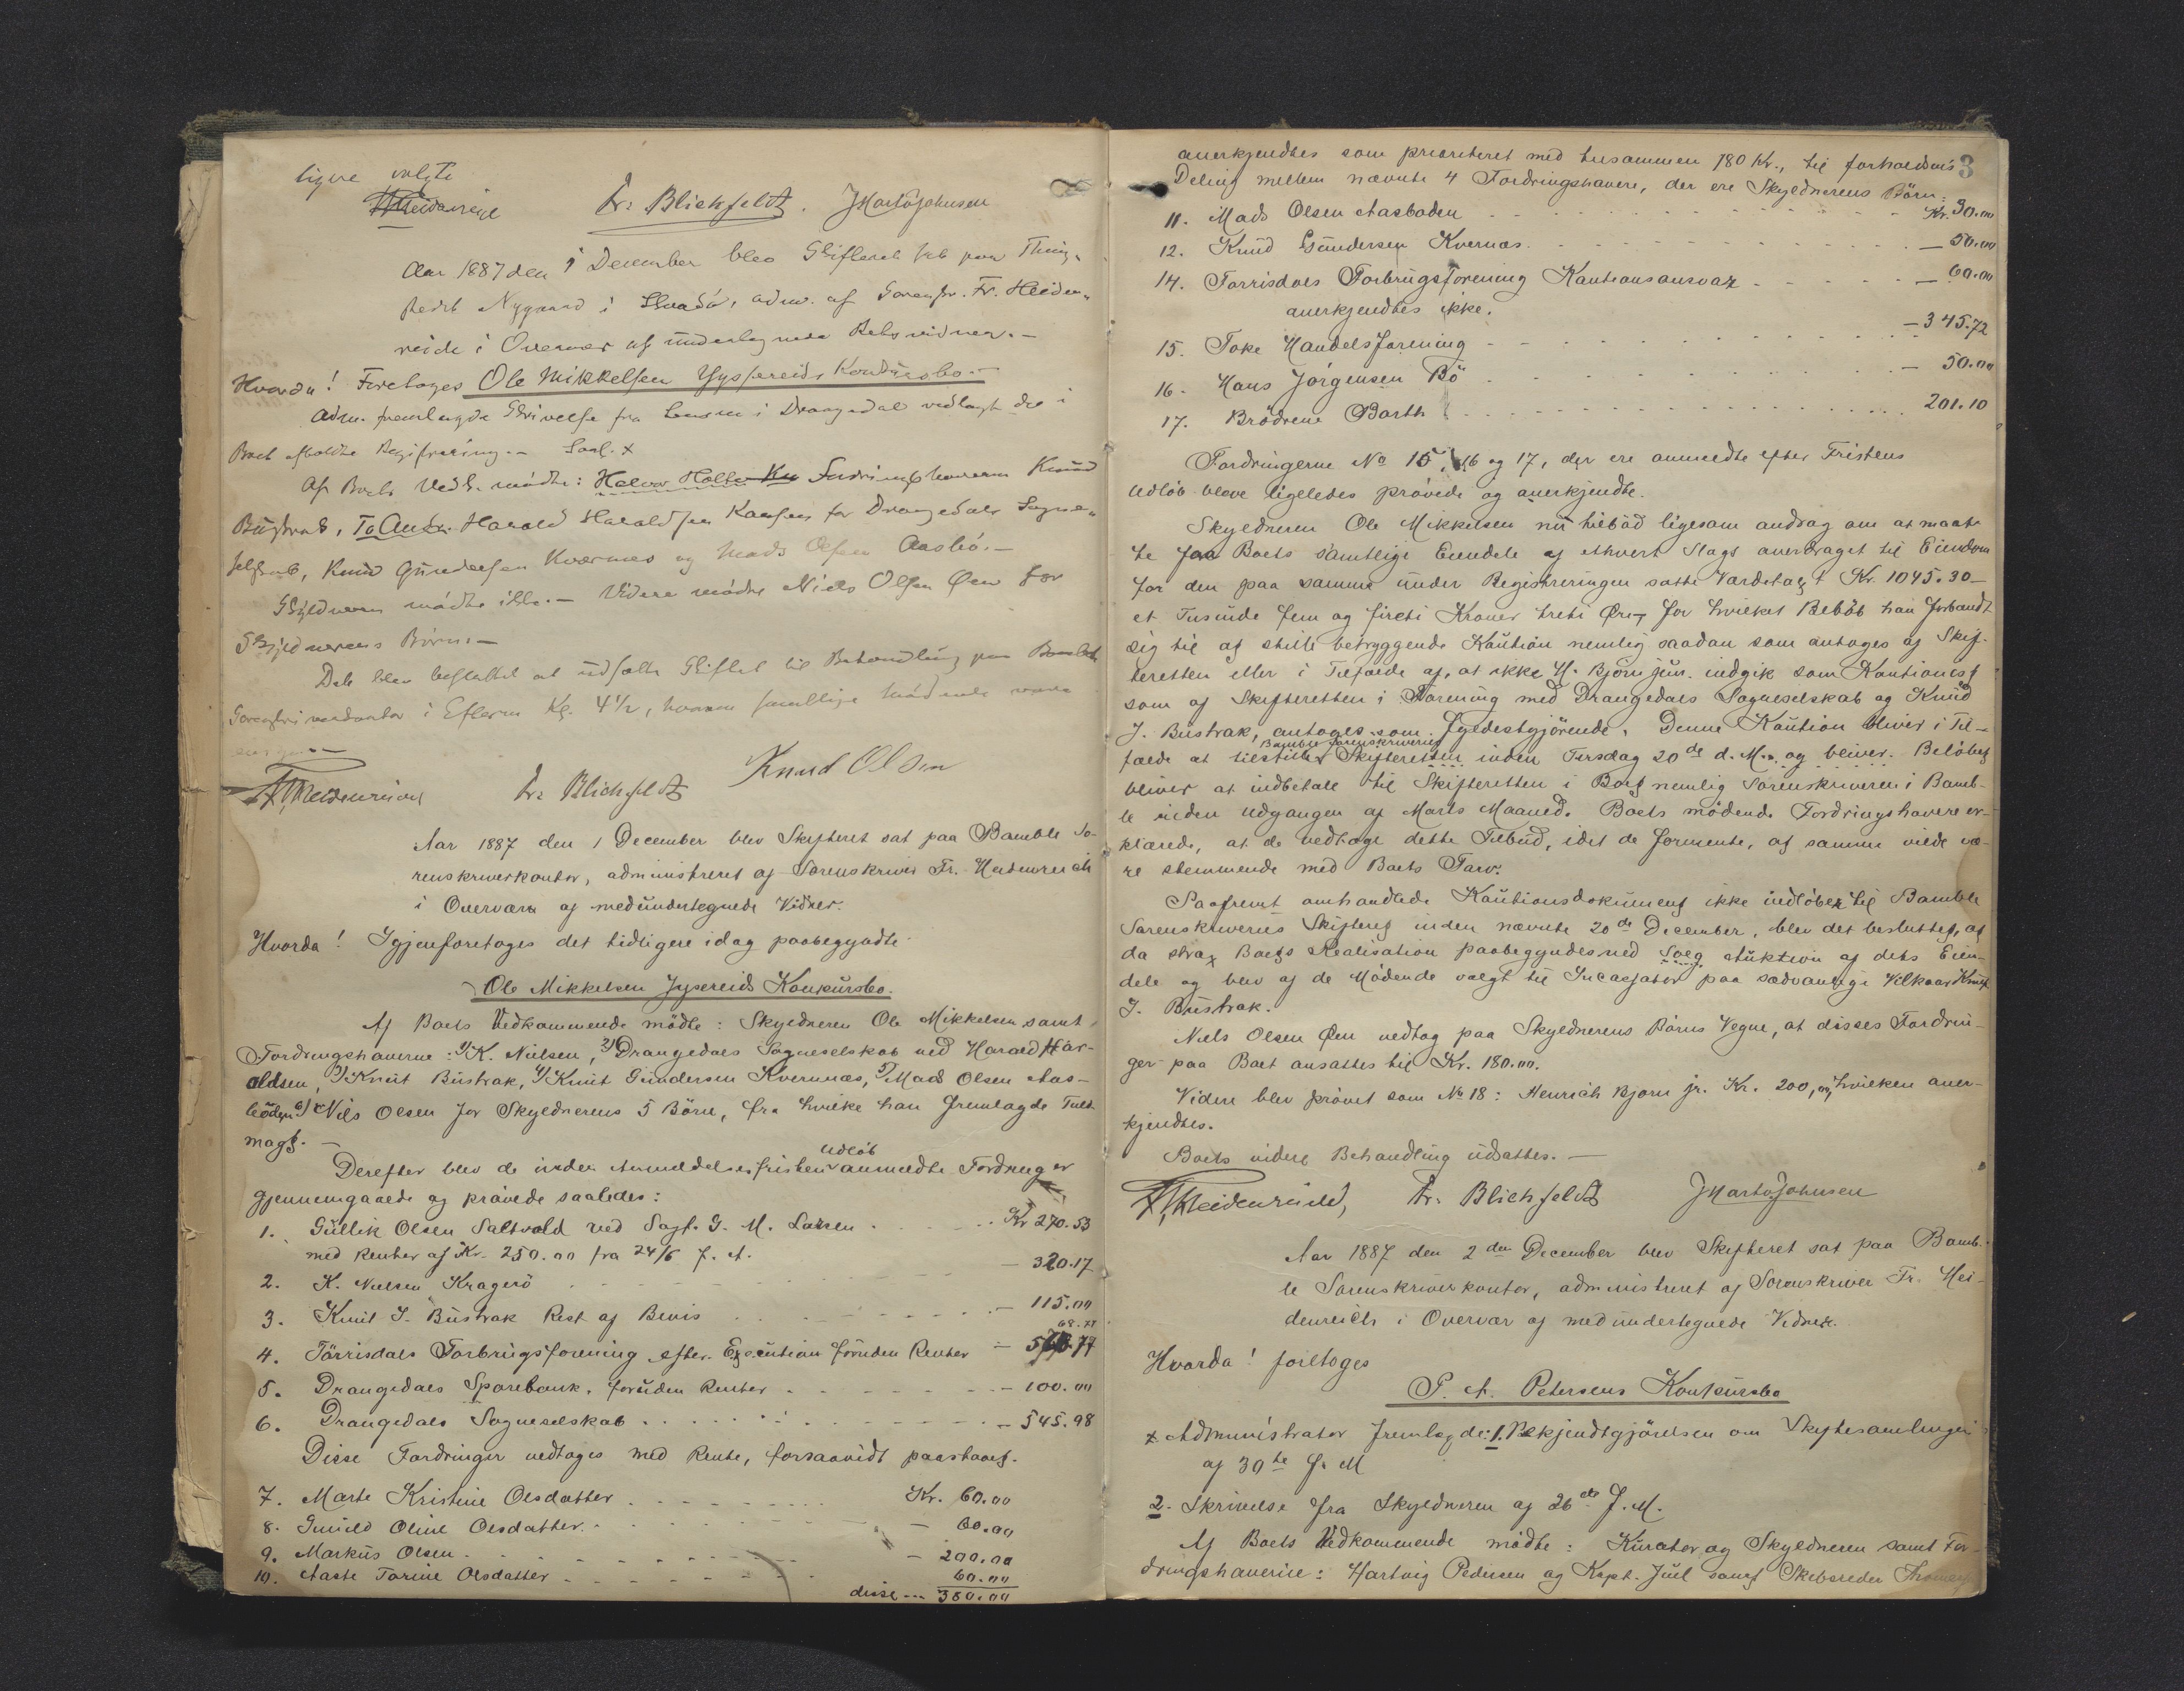 ligere valgte
Heidenreich Fr. Blichfeldt. J Marto Johnsen
Aar 1887 den 1 December blev Skifteret sat paa Thing-
stedet Nygaard i , adm. af Sorenskr. Fr. Heiden-
reich i Overvær af undertegnede Retsvidner.-
Hvorda! Foretoges Ole Mikkelsen Gysereids Konkursbo.-
Adm. fremlagde Skrivelse fra Lensm i Drangedal vedlagt de i
Boet afholdte Registrering.- Saal. x
Af Boets Vedk. mødte: Halvor Fordringshaveren Knud
Bustrak, Harald Haraldsen for Drangedals Sogne-
selskab, Knud Gundersen Kvernæs og Mads Olsen Aasbö.-
Skyldneren mødte ikke.- Videre mødte Niels Olsen Øen for
Skyldnerens Börn.-
Dete blev besluttet at udsætte Skiftet til Behandling paa Bamble
Sorenskriverkontor i Efterm Kl. 4 1/2, hvorom samtlige Mødende
Heidenreich Fr. Blichfeldt Knud Olsen
Aar 1887 den 1 December blev Skifteret sat paa Bamble So-
renskriverkontor, administreret af Sorenskriver Fr. Heidenreich
i Overvær af medundertegnede Vidner.
Hvorda! Igjenforetoges det tidligere idag paabegyndte
Ole Mikkelsen Jysereids Konkursbo.
Af Boets Vedkommende mödte: Skyldneren Ole Mikkelsen samt
Fordringshaverne: 1) K. Nielsen, 2) Drangedals Sogneselskab ved Harald Har-
aldsen, 3) Knut Bustrak, 4) Knut Gundersen Kvernæs, 5) Mads Olsen Aas-
böden 6) Nils Olsen for Skyldnerens 5 Börn, fra hvilke han fremlagde Fuld-
magt. -
Derefter blev de inden Anmeldelsesfristens Udlöb anmeldte Fordringer
gjennemgaaede og prövede saaledes:
1. Gullik Olsen Saltvold ved Sagf. G. M. Larsen . . . Kr 270.53
med Renter af Kr. 250.00 fra 24/6 f. A.
2. K. Nielsen Kragerö - 320.17
3. Knut J. Bustrak Rest af Bevis . . . - 115.00
4. Törrisdals Forbrugsforening efter Execution foruden Renter - 568.77
5. Drangedals Sparebank, foruden Renter . . . - 100.00
6. Drangedals Sogneselskab . . . - 545.98
Disse Fordringer vedtoges med Rente, forsaavidt paastaaet.
7. Marte Kristine Olsdatter . . . Kr. 60.00
8. Gunild Oline Olsdatter . . . - 60.00
9. Markus Olsen . . . - 200.00
10. Aaste Torine Olsdatter . . . 60.00
disse ... 380.00
3
anerkjendtes som prioriteret med tilsammen 180 Kr., til forholdsvis
Deling mellem nævnte 4 Fordringshavere, der ere Skyldnerens Börn.
11. Mads Olsen Aasboden . . . Kr. 30.00
12. Knud Gundersen Kvernæs . . . - 50.00
14. Torrisdals Forbrugsforening Kautionsansvar . . . - 60.00
anerkjendtes ikke.
15. Toke Handelsforening . . . - 345.72
16. Hans Jörgensen Bö . . . - 50.00
17. Brödrene Barth . . . 201.10
Fordringerne No 15, 16 og 17, der ere anmeldte efter Fristens
Udlöb bleve ligeledes prövede og anerkjendte.
Skyldneren Ole Mikkelsen nu tilböd ligesom androg om at maat-
te faa Boets samtlige Eiendele af ethvert Slags overdraget til Eiendom
for den paa samme under Registreringen satte Værdetagt Kr. 1045.30 -
et Tusinde fem og firti Kroner treti Öre -, for hvilket Belöb han forbandt
sig til at stille betryggende Kaution nemlig saadan som antages af Skif-
teretten eller i Tilfælde af, at ikke H. Björn jun. indgik som Kautionist
som af Skifteretten i Forening med Drangedals Sogneselskab og Knud
J. Bustrak, antoges som fyldestgjörende. Denne Kaution bliver i Til-
fælde at tilstille Bamble Sorenskriveri Skifteretten inden Tirsdag 20de d. M. og bliver. Belöbet
bliver at indbetale til Skifteretten i Boet nemlig Sorenskriveren i Bamb-
le inden Udgangen af Marts Maaned. Boets mödende Fordringshavere er-
klærede, at de vedtoge dette Tilbud, idet de formente, at samme vilde væ-
re stemmende med Boets Tarv.
Saafremt omhandlede Kautionsdokument ikke indlöber til Bamble
Sorenskriveris Skifteret inden nævnte 20de December, blev det besluttet, at
da strax Boets Realisation paabegyndes ved Salg Auktion af dets Eien-
dele og blev af de Mödende valgt til Incassator paa sædvanlige Vilkaar Knut
J. Bustrak.
Niels Olsen Öen vedtog paa Skyldnerens Börns Vegne, at disses Fordrin-
ger paa Boet ansattes til Kr. 180.00.
Videre blev prövet som No 18: Henrich Bjorn jr. Kr. 200,00, hvilken aner-
kjendtes.
Boets videre Behandling udsattes. -
Heidenreich, Fr. Blichfeldt J Marto Johnsen
Aar 1887 den 2den December blev Skifteret sat paa Bamb-
le Sorenskriverkontor, administreret af Sorenskriver Fr. Hei-
denreich i Overvær af medundertegnede Vidner.
Hvorda! foretoges
P. A. Petersens Konkursbo
x Administrator fremlagde: 1. Bekjendtgjörelsen om Skiftesamlingen
af 30te f. M
2. Skrivelse fra Skyldneren af 26de f. M.
Af Boets Vedkommende mödte: Kurator og Skyldneren samt For-
dringshaverne: Hartvig Pedersen og Kapt. Juel samt Skibsreder Thommesen